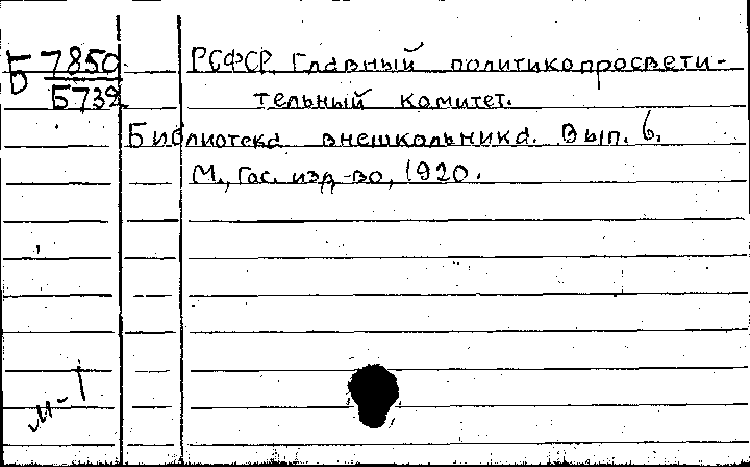 Б 7850
Б739
РСФСР. Главный политикопросвети-
тельный комитет.
Библиотека внешкольника. Вып. 6.
М., Гос. изд-во, 1920.
м-1